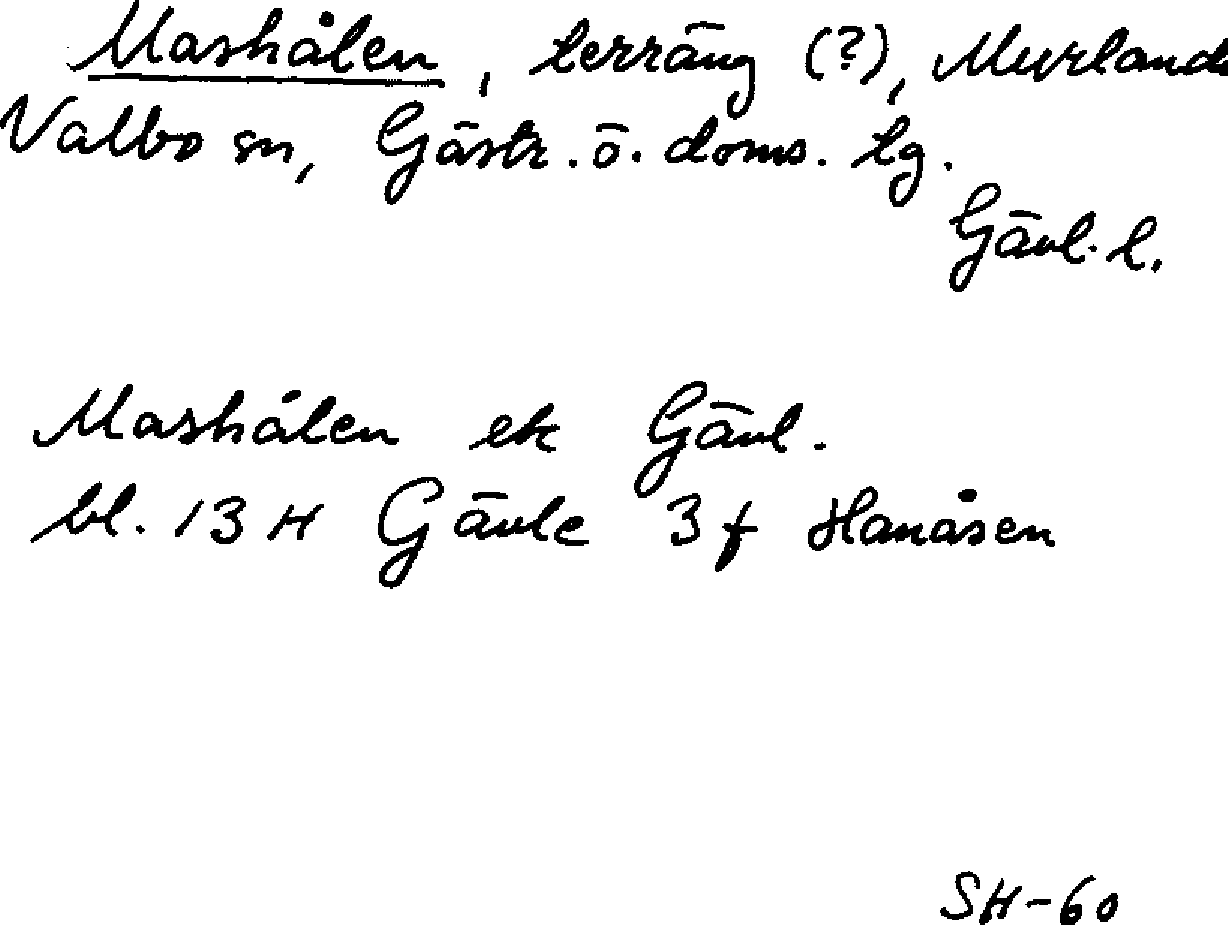 Mashålen, terräng (?), Myrlande
Valbo sn, Gästr. ö. doms. tg.
Gävl. l.
Mashålen ek Gävl.
bl. 13 H Gävle 3 f Hanåsen
SH-60